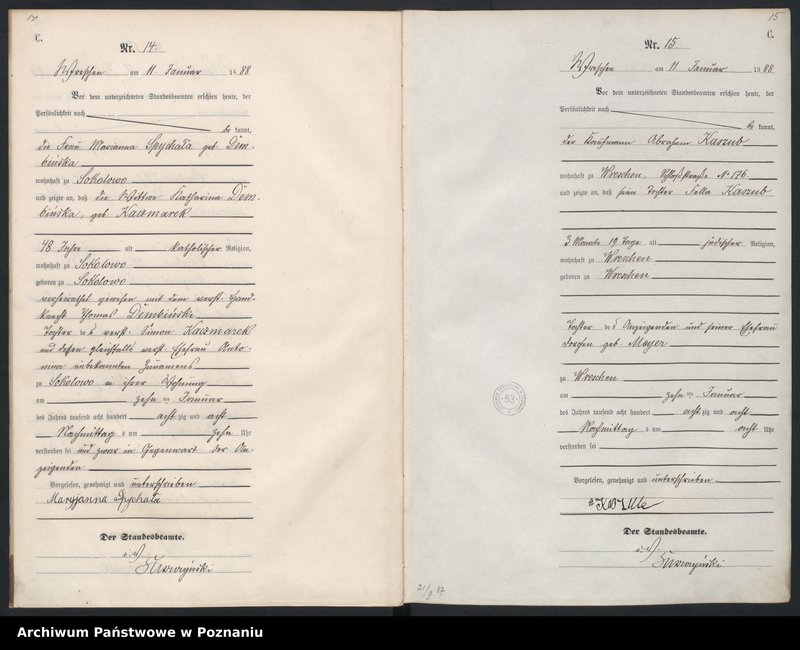 14.
C.
Nr. 14.
Wreschen am 11 Januar 1888
Vor dem unterzeichneten Standesbeamten erschien heute, der
Persönlichkeit nach
be kannt,
die Frau Marianna Spychała geb Dem-
bińska
wohnhaft zu Sokolowo
und zeigte an, daß die Wittwe Katharina Dem-
bińska, geb. Kaczmarek
48 Jahre alt katholischer Religion,
wohnhaft zu Sokolowo
geboren zu Sokolowo
verheirathet gewesen mit dem verst.
knecht Thomas Dembiński
Tochter des verst. Simon Kaczmarek
und dessen gleichfalls verst. Ehefrau Anto-
nina unbekannten Zunamens
zu Sokolowo in ihrer Wohnung
am zehn ten Januar
des Jahres tausend acht hundert acht zig und acht
Nachmittag s um zehn Uhr
verstorben sei und zwar in Gegenwart der An-
zeigenden
Vorgelesen, genehmigt und unterschrieben
Maryjanna Spychała
Der Standesbeamte.
i. V.
15
C.
Nr. 15
Wreschen am 11 Januar 1888
Vor dem unterzeichneten Standesbeamten erschien heute, der
Persönlichkeit nach
be kannt,
der Kaufmann Abraham Kaszub
wohnhaft zu Wreschen, Schloßstraße No 176
und zeigte an, daß seine Tochter Kaszub
3 Monate 19 Tage alt jüdischer Religion,
wohnhaft zu Wreschen
geboren zu Wreschen
Tochter des Anzeigenden und seiner Ehefrau
Dorchen geb. Meyer
zu Wreschen
am zehn ten Januar
des Jahres tausend acht hundert acht zig und acht
Nachmittag s um acht Uhr
verstorben sei
Vorgelesen, genehmigt und unterschrieben
Der Standesbeamte.
i. V.
53
Archiwum Państwowe w Poznaniu